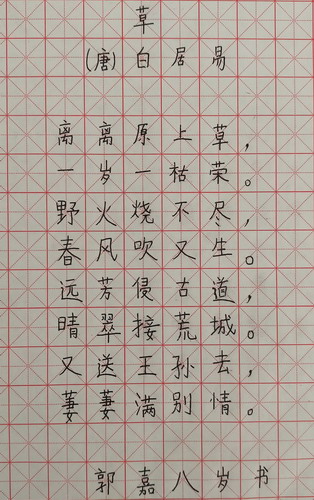 草
(唐)白居易
离离原上草，
一岁一枯荣。
野火烧不尽，
春风吹又生。
远芳侵古道，
晴翠接荒城。
又送王孙去，
萋萋满别情。
郭嘉八岁书